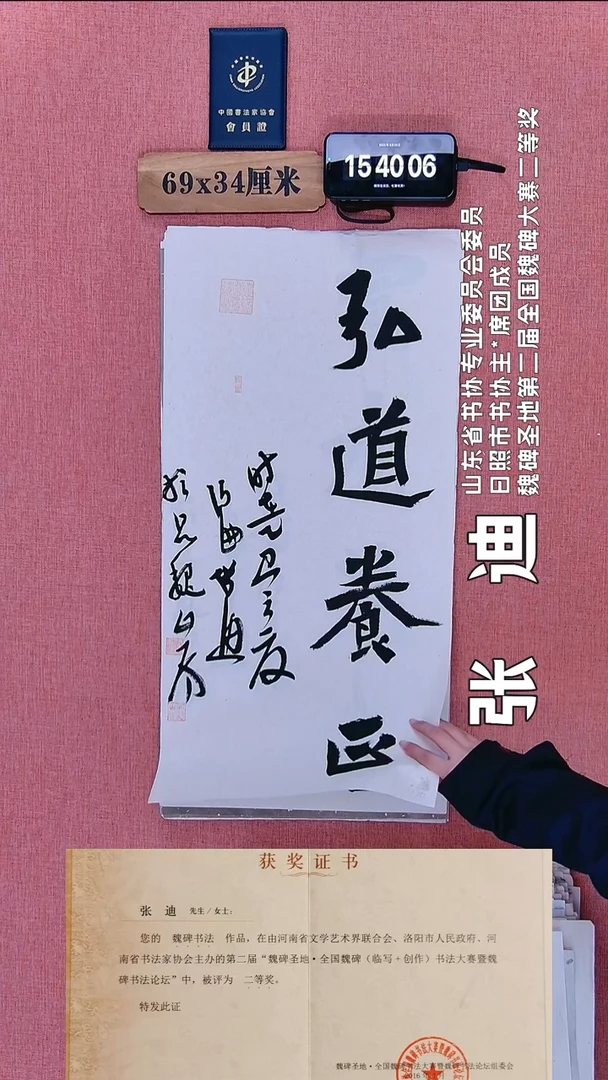 中國書法家協會
會員證
69x34厘米
15 40 06
弘
道
養
正
時堯
于魏
山东省书协专业委员会委员
日照市书协主*席团成员
魏碑圣地第二届全国魏碑大赛二等奖
张 迪
获奖证书
张 迪 先生/女士:
您的 魏碑书法 作品,在由河南省文学艺术界联合会、洛阳市人民政府、河
南省书法家协会主办的第二届“魏碑圣地·全国魏碑(临写+创作)书法大赛暨魏
碑书法论坛”中,被评为 二等奖。
特发此证
魏碑圣地·全国魏碑书法大赛暨魏碑书法论坛组委会